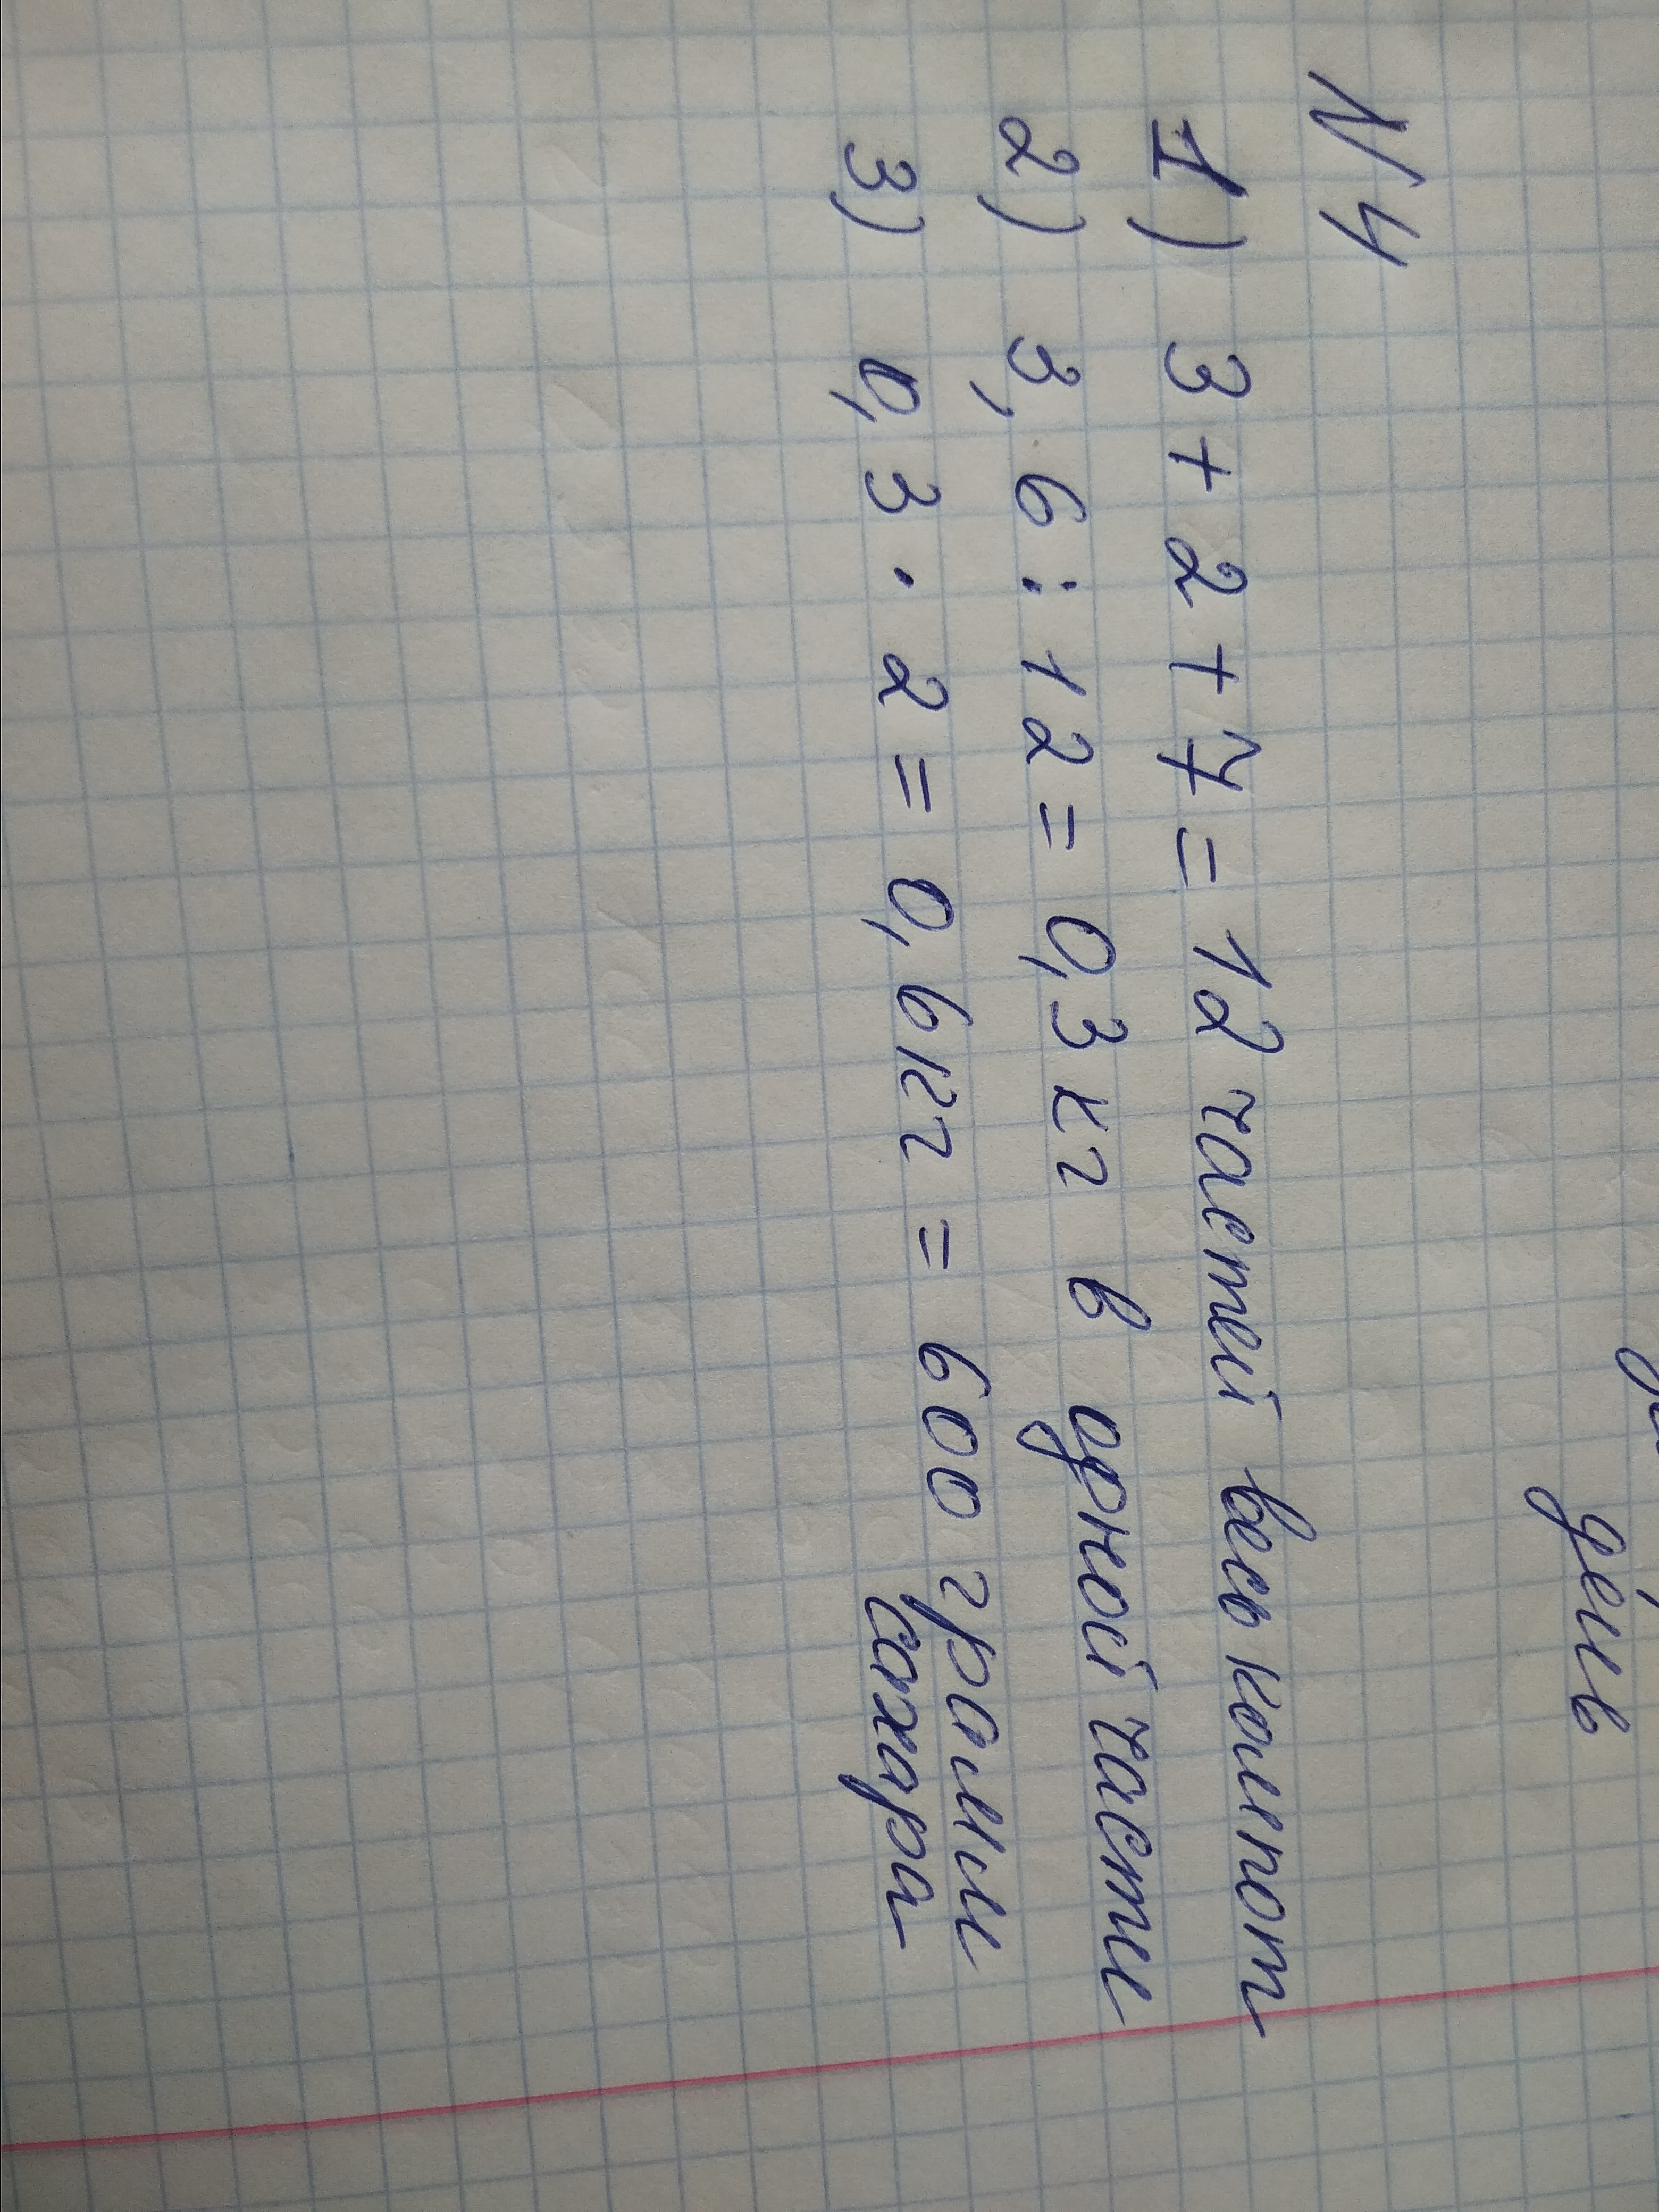 день
N 4
1) 3 + 2 + 7 = 12 частей весь компот
2) 3,6 : 12 = 0,3 кг в одной части
3) 0,3 · 2 = 0,6 кг = 600 грамм
сахара